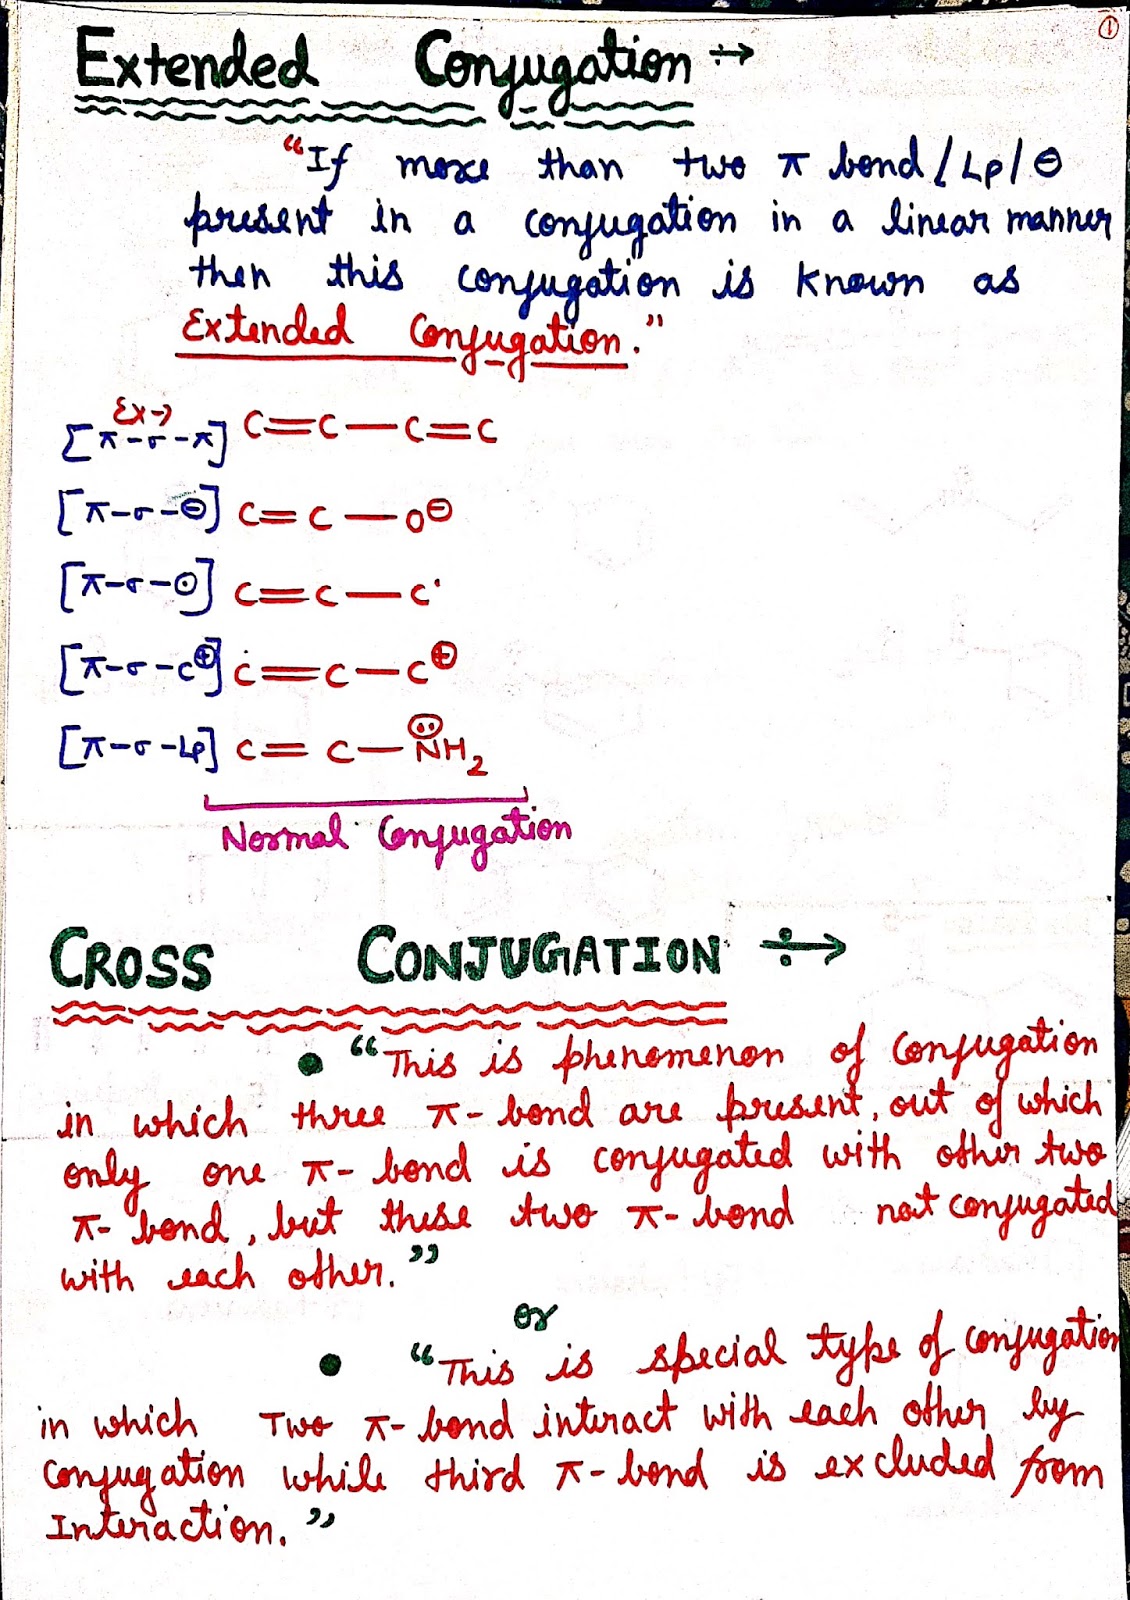 ①
Extended Conjugation ÷→
"If more than two π bond / Lp / ⊖
present in a conjugation in a linear manner
then this conjugation is known as
Extended Conjugation."
Ex→
[π-σ-π] C=C—C=C
[π-σ-⊖] C=C—O⊖
[π-σ-⊙] C=C—C·
[π-σ-C⊕] C=C—C⊕
[π-σ-Lp] C=C—N̈H₂
Normal Conjugation
CROSS CONJUGATION ÷→
• "This is phenomenon of conjugation
in which three π-bond are present, out of which
only one π-bond is conjugated with other two
π-bond, but these two π-bond not conjugated
with each other."
or
• "This is special type of conjugation
in which Two π-bond interact with each other by
conjugation while third π-bond is excluded from
Interaction."